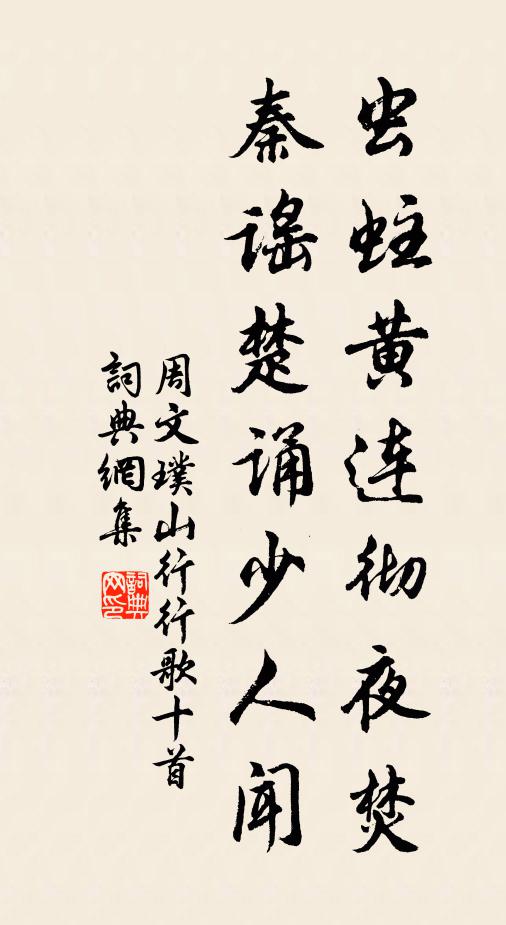 虫蛀黄连彻夜焚
秦谣楚诵少人闻
周文璞山行行歌十首
詞典網集
詞典
网印